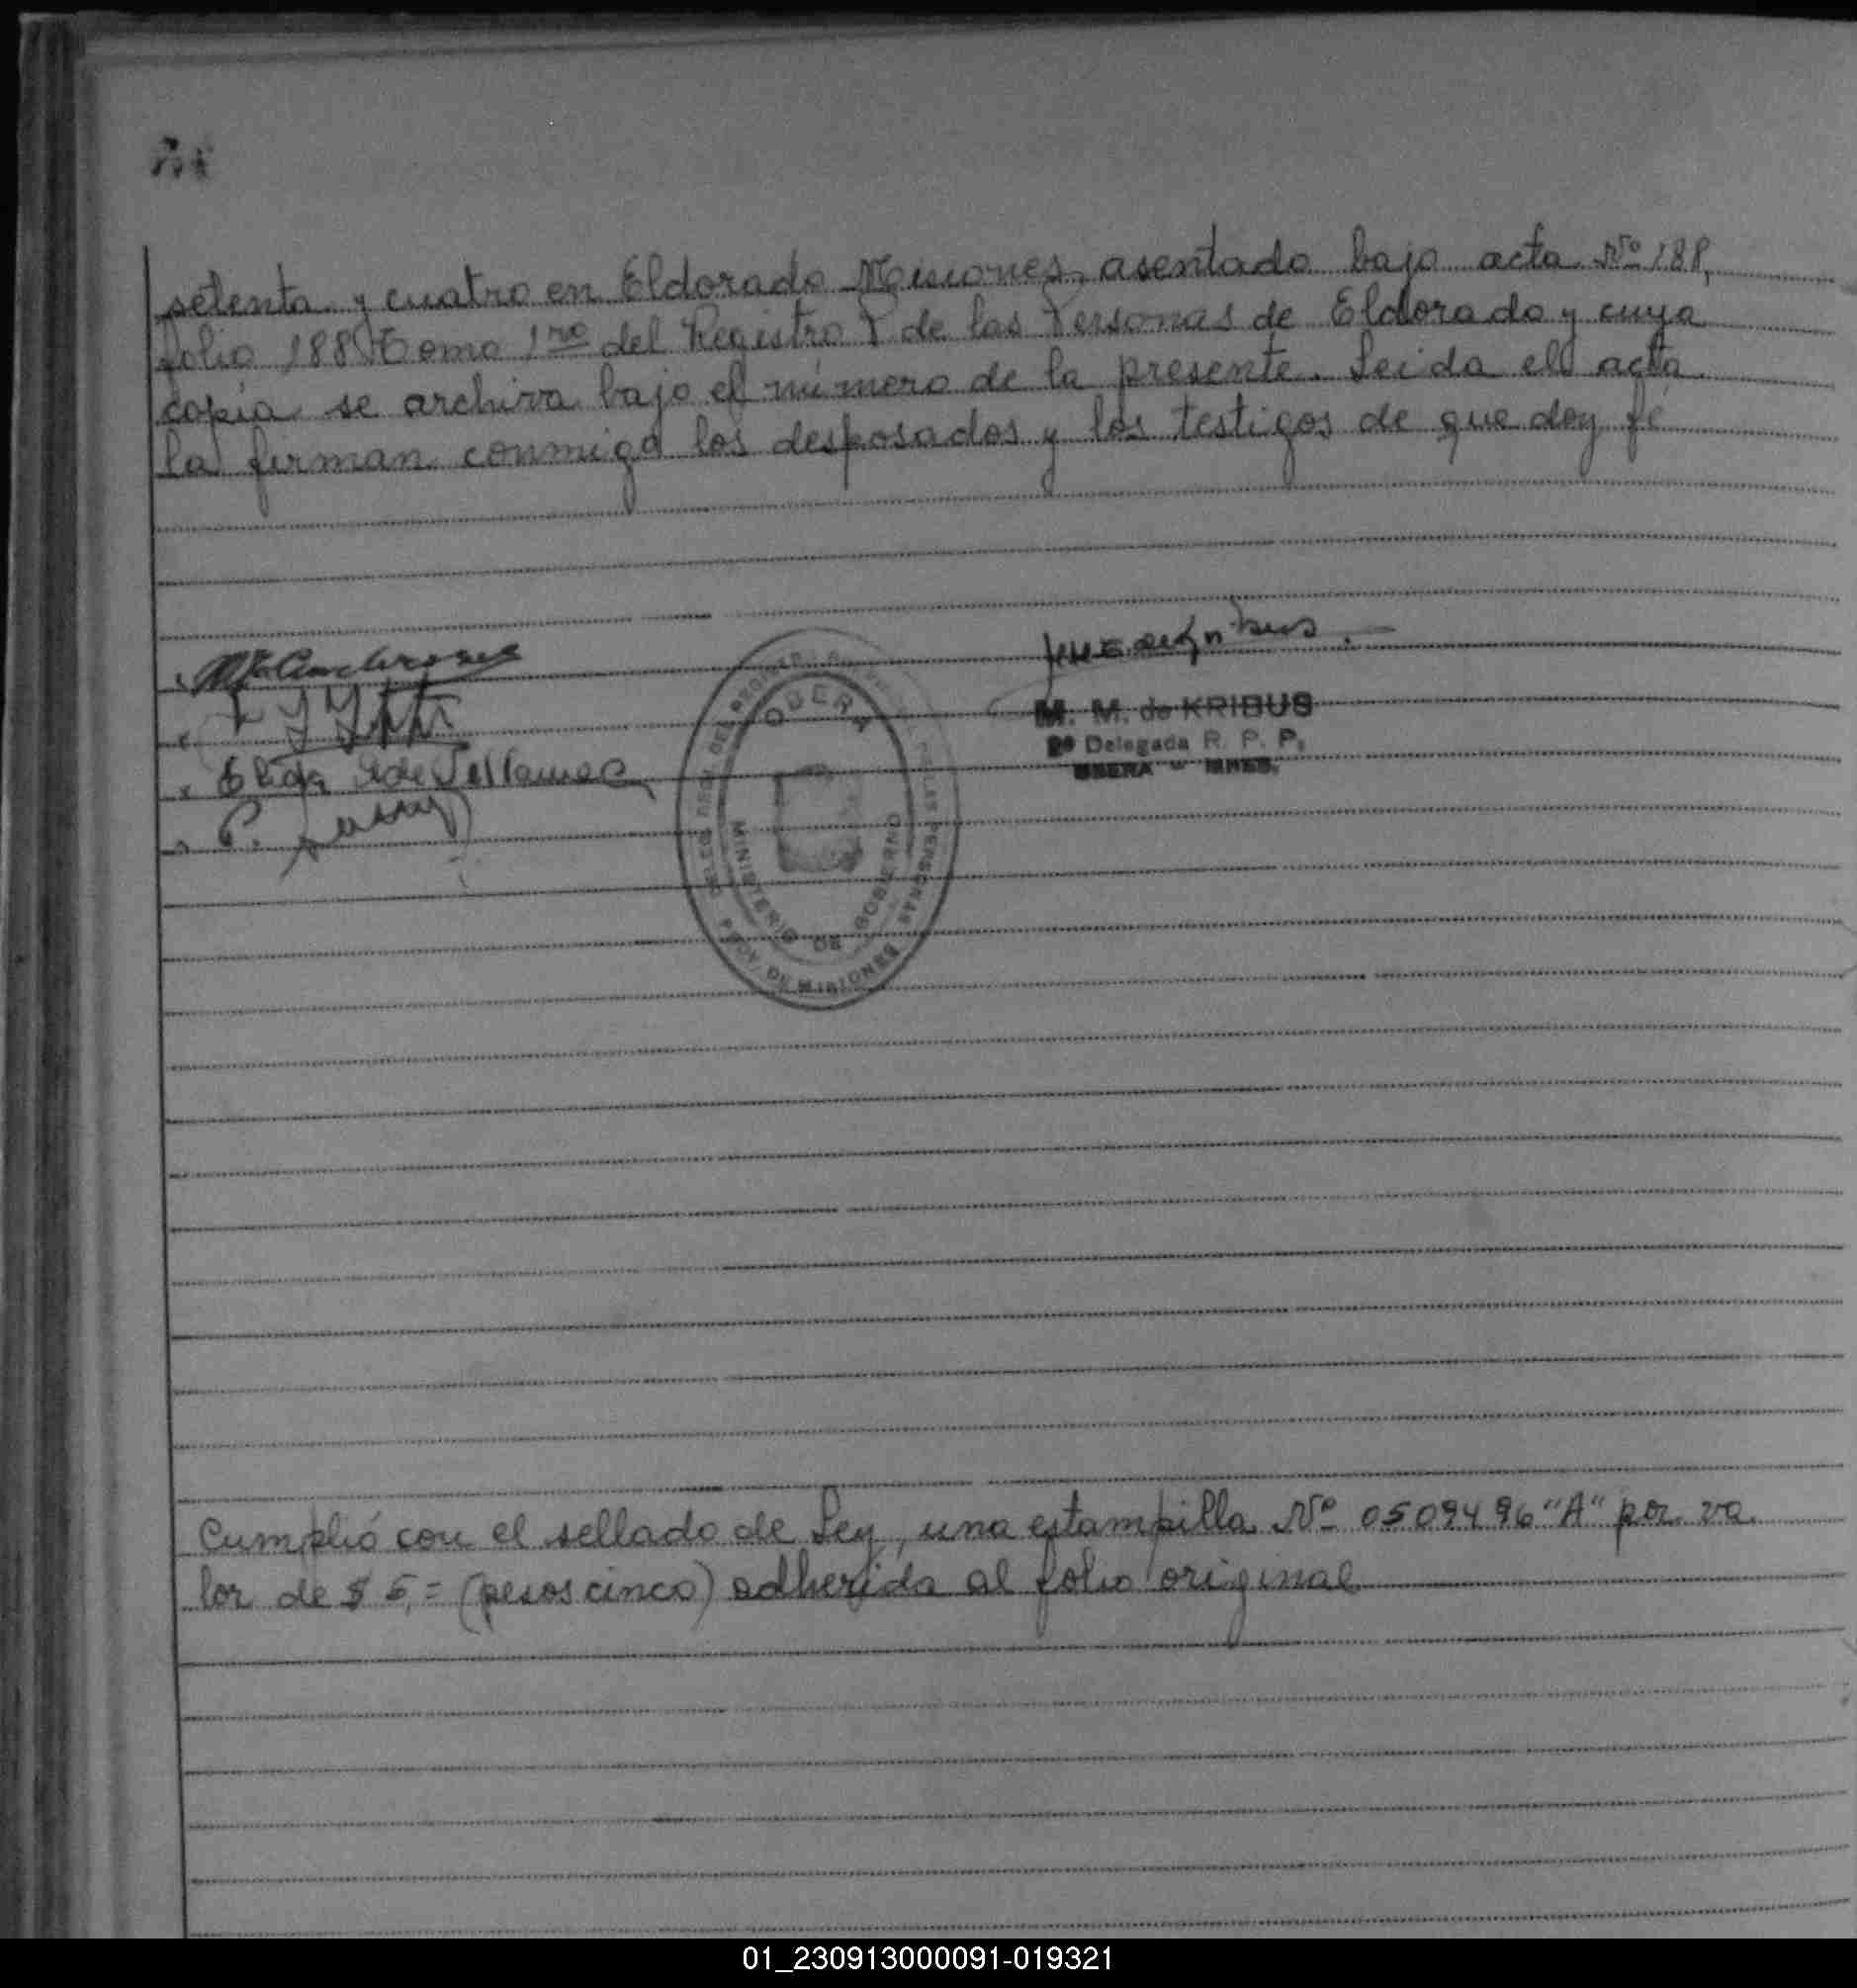 setenta y cuatro en Eldorado Misiones, asentado bajo acta Nº 188,
folio 188 Tomo 1ro del Registro P de las Personas de Eldorado y cuya
copia se archiva bajo el número de la presente. Leida el acta
la firman conmigo los desposados y los testigos de que doy fé
M. M. de KRIBUS
2ª Delegada R. P. P.
OBERA - MNES.
OBERA
MINISTERIO DE GOBIERNO
PROV. DE MISIONES
DE LAS PERSONAS
Cumplió con el sellado de Ley, una estampilla Nº 0509496 "A" por va
lor de $ 5,= (pesos cinco) adherida al folio original
01_230913000091-019321